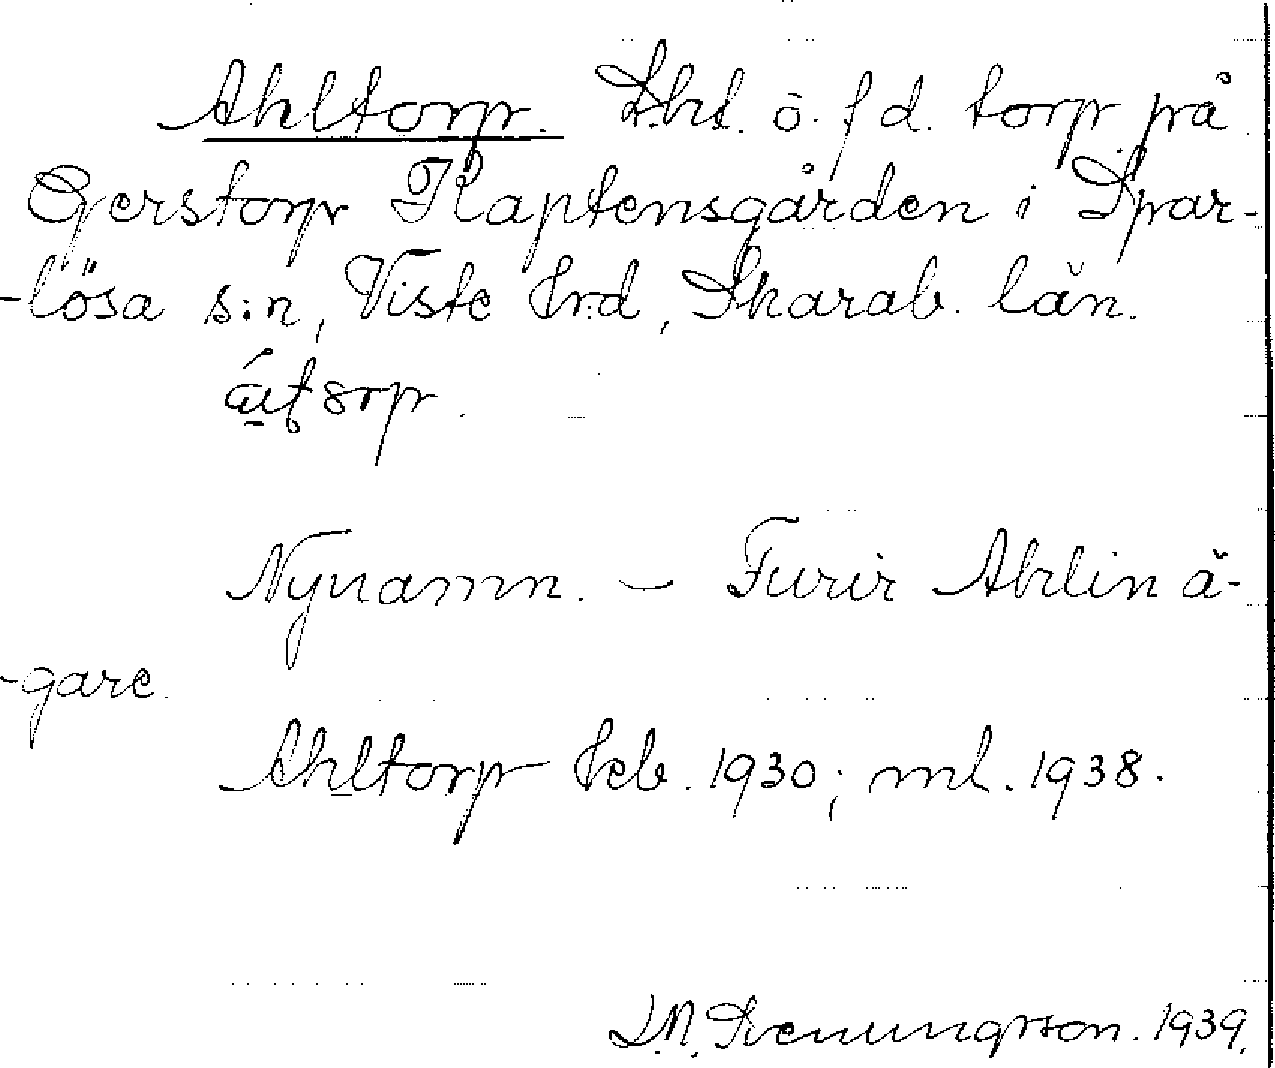 Ahltorp. Lht. o. f d. torp på
Gerstorp Kaptensgården i Spar-
-lösa s:n, Viste hrd, Skarab. län.
Nynamn. — Furir Ahlin ä-
-gare.
Ahltorp Jeb. 1930; ml. 1938.
Svenungsson. 1939.